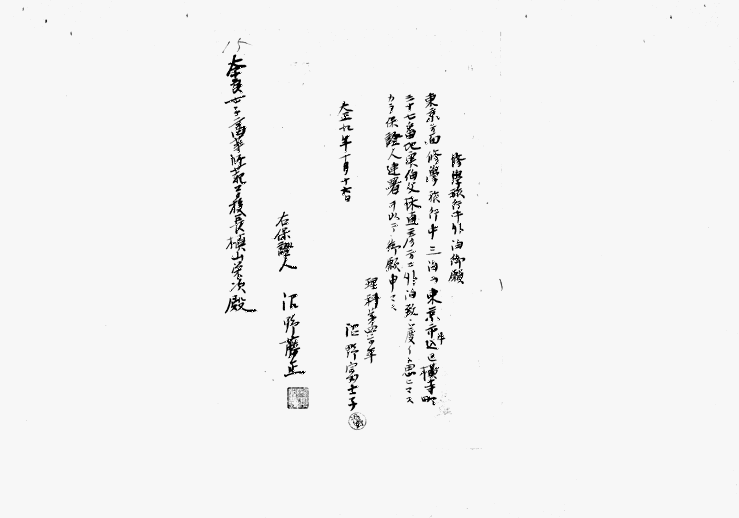 修學旅行中外泊御願
東京方面修學旅行中三泊ヲ東京市牛込区横寺町
三十七番地実伯父 方ニ外泊致シ度ク思ヒマス
カラ保證人連署ヲ以テ御願申マス
大正九年十月十六日
理科第四学年
沼野富士子
右保證人 沼野藤
奈良女子高等師範学校長槇山栄次殿